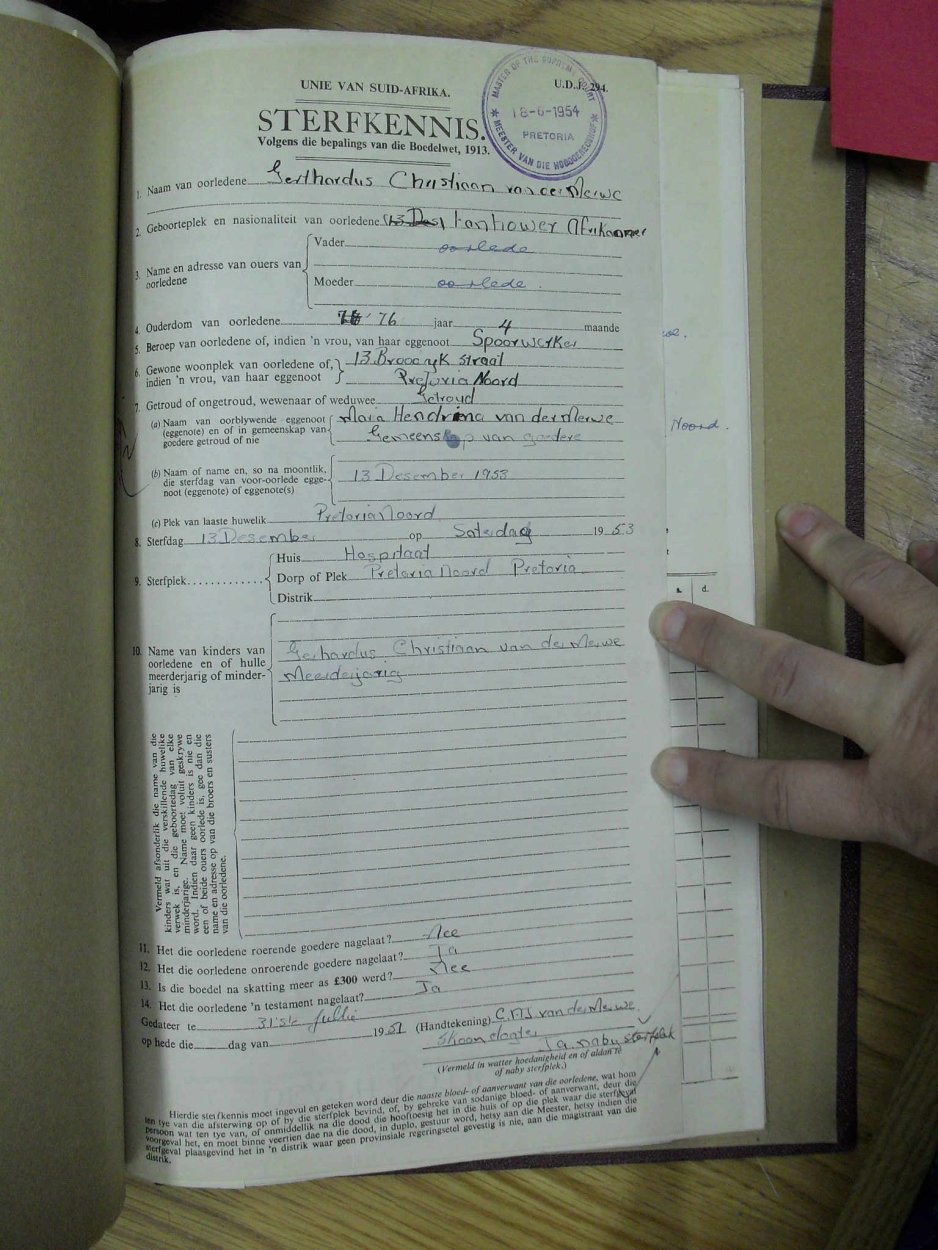 UNIE VAN SUID-AFRIKA.
U.D.J. 294.
MASTER OF THE SUPREME COURT
18-6-1954
PRETORIA
MEESTER VAN DIE HOOGGEREGSHOF
STERFKENNIS.
Volgens die bepalings van die Boedelwet, 1913.
1. Naam van oorledene Gerthardus Christiaan van der Merwe
2. Geboorteplek en nasionaliteit van oorledene Afrikaaner
3. Name en adresse van ouers van oorledene
Vader oorlede
Moeder oorlede.
4. Ouderdom van oorledene 76 jaar 4 maande
5. Beroep van oorledene of, indien 'n vrou, van haar eggenoot Spoorwerker
6. Gewone woonplek van oorledene of, 13 straat
indien 'n vrou, van haar eggenoot Pretoria Noord
7. Getroud of ongetroud, wewenaar of weduwee Getroud
(a) Naam van oorblywende eggenoot Maria Hendrina van der Merwe
(eggenote) en of in gemeenskap van Gemeenskap van goedere
goedere getroud of nie
(b) Naam of name en, so na moontlik,
die sterfdag van voor-oorlede egge- 13 Desember 1953
noot (eggenote) of eggenote(s)
(c) Plek van laaste huwelik Pretoria Noord
8. Sterfdag 13 Desember op Saterdag 1953
9. Sterfplek
Huis Hospitaal
Dorp of Plek Pretoria Noord Pretoria
Distrik
10. Name van kinders van Gerhardus Christiaan van der Merwe
oorledene en of hulle Meerderjarig
meerderjarig of minder-
jarig is
Vermeld afsonderlik die name van die
kinders wat uit die verskillende huwelike
verwek is, en die geboortedag van elke
minderjarige. Name moet voluit geskrywe
word. Indien daar geen kinders is nie en
een of beide ouers oorlede is, gee dan die
name en adresse op van die broers en susters
van die oorledene.
11. Het die oorledene roerende goedere nagelaat? Nee
12. Het die oorledene onroerende goedere nagelaat? Ja
13. Is die boedel na skatting meer as £300 werd? Nee
14. Het die oorledene 'n testament nagelaat? Ja
Gedateer te 31ste Jullie
op hede die dag van 1951 (Handtekening) van der Merwe
Skoon dogter
Ja naby sterfplek
(Vermeld in watter hoedanigheid en of aldan te
of naby sterfplek.)
Hierdie sterfkennis moet ingevul en geteken word deur die naaste bloed- of aanverwant van die oorledene, wat hom
ten tye van die afsterwing op of by die sterfplek bevind, of, by gebreke van sodanige bloed- of aanverwant, deur die
persoon wat ten tye van, of onmiddellik na die dood die hooftoesig het in die huis of op die plek waar die sterfgeval
voorgeval het, en moet binne veertien dae na die dood, in duplo, gestuur word, hetsy aan die Meester, hetsy indien die
sterfgeval plaasgevind het in 'n distrik waar geen provinsiale regeringsetel gevestig is nie, aan die magistraat van die
distrik.
Noord.
s. d.